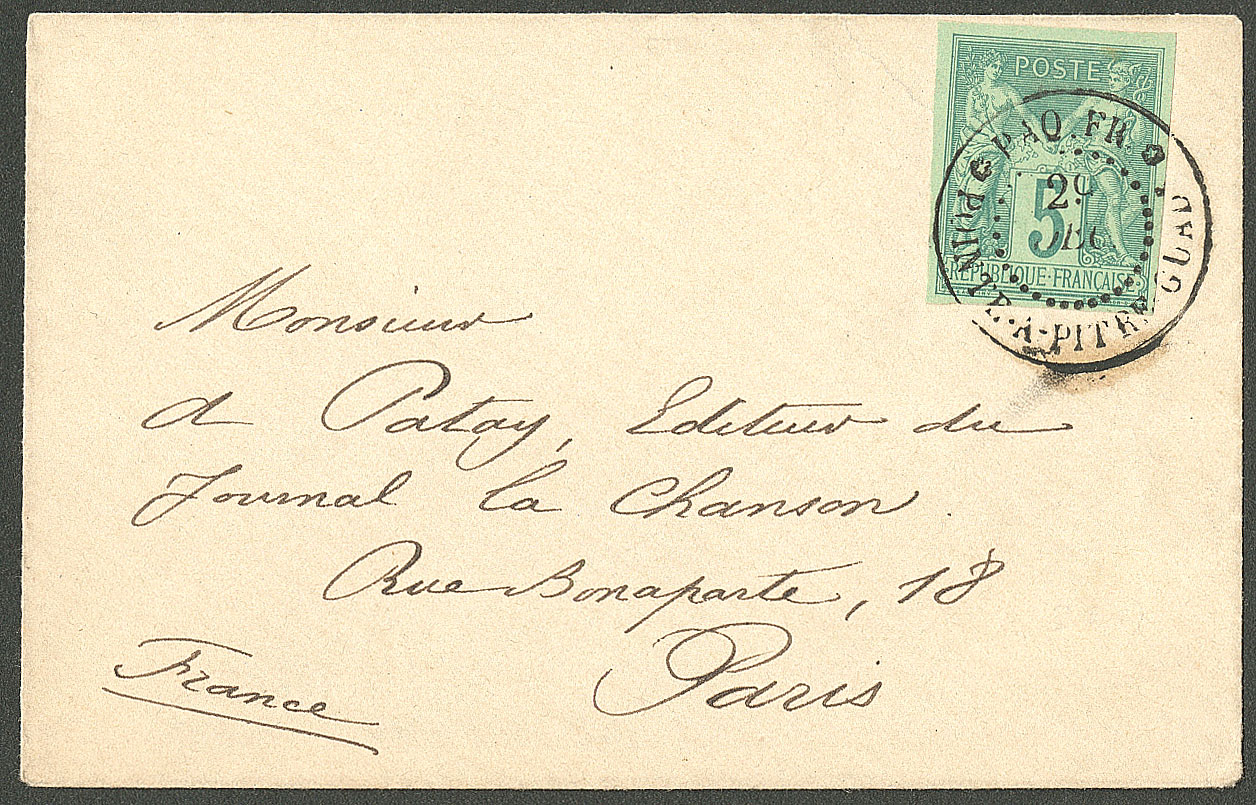 POSTE
PAQ. FR.
POINTE-A-PITRE GUAD
5
REPUBLIQUE·FRANÇAISE·
Monsieur
de Patay, Editeur du
Journal la Chanson.
Rue Bonaparte, 18
Paris
France